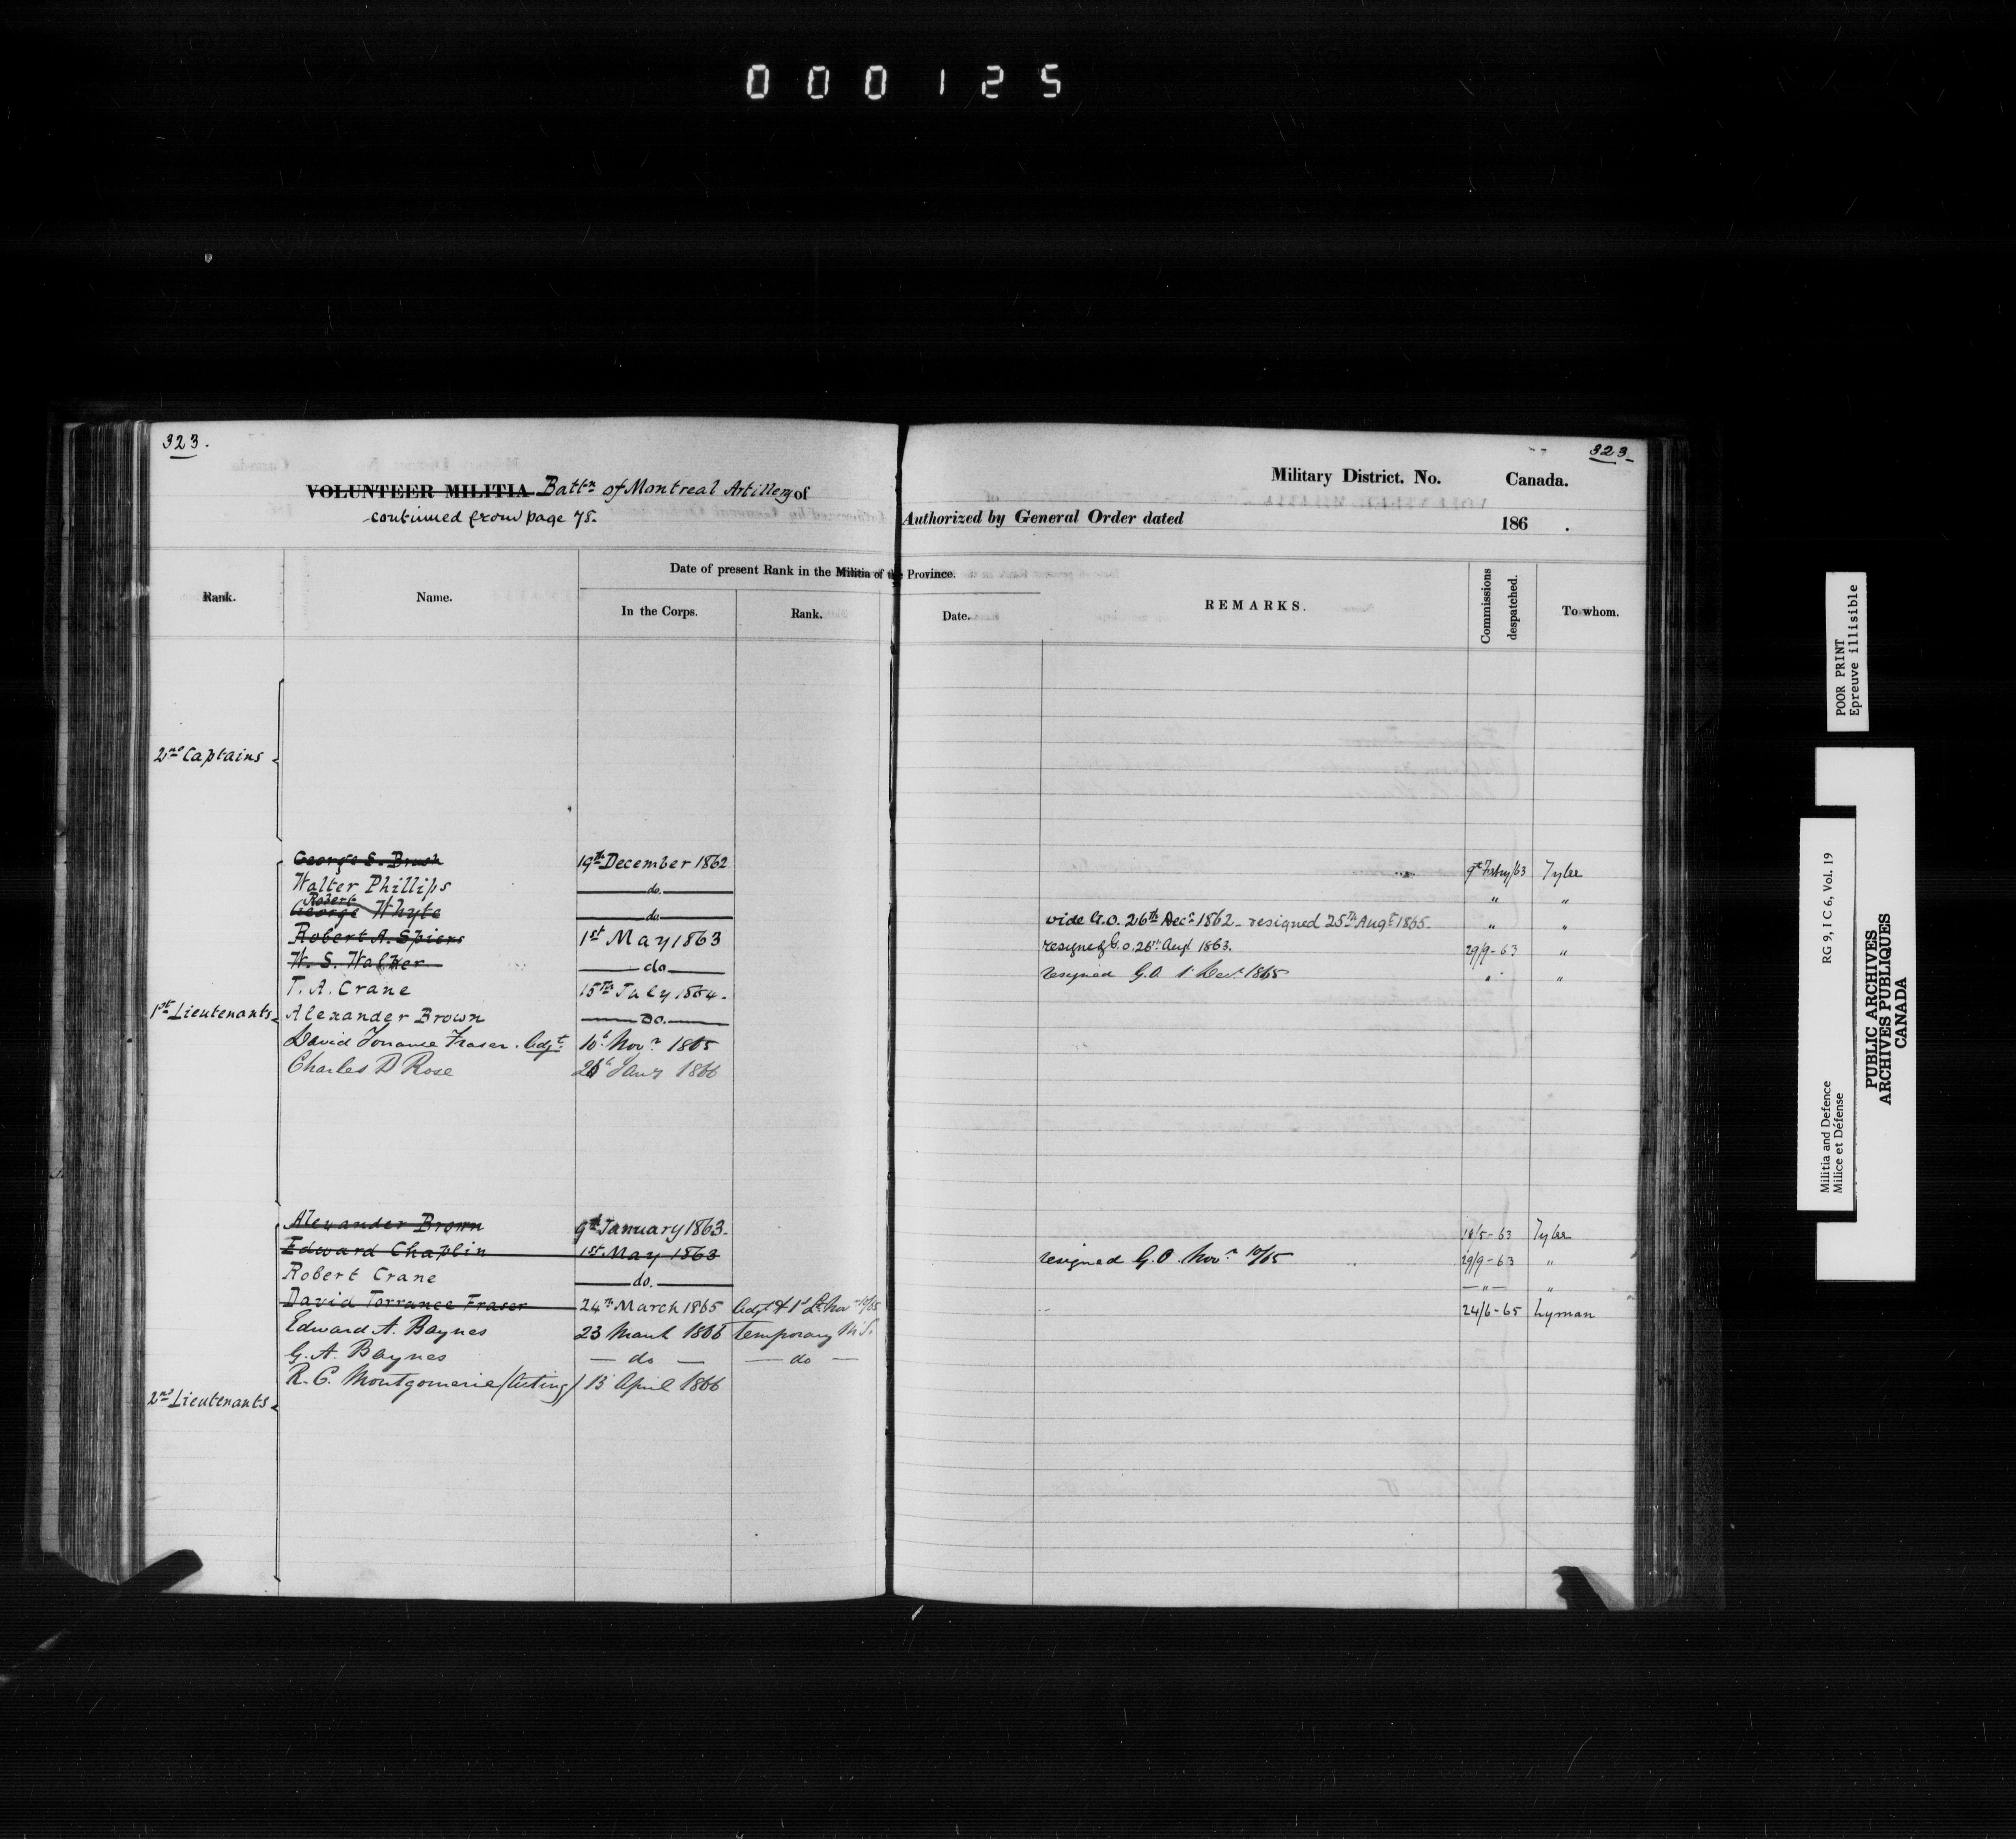 000125
323.
323_
VOLUNTEER MILITIA Battn of Montreal Artillery of
continued from page 75.
Military District. No. Canada.
Authorized by General Order dated 186 .
Rank. Name. Date of present Rank in the Militia of the Province. REMARKS. Commissions despatched. To whom.
In the Corps. Rank. Date.
2nd Captains
George S. Brush 19th December 1862 9th Febry/63 Tylee
Walter Phillips do. " "
Robert
George Whyte do. vide G.O. 26th Decr 1862 - resigned 25th Augt 1865. " "
Robert A. Spiers 1st May 1863 resigned G.O. 26th Augt 1863. 29/9-63 "
W. S. Walker do resigned G.O. 1 Decr 1865 " "
T. A. Crane 15th July 1864.
1st Lieutenants Alexander Brown Do.
David Torrance Fraser. Adjt 10th Novr 1865
Charles D Rose 26th Jany 1866
Alexander Brown 9th January 1863. 18/5-63 Tylee
Edward Chaplin 1st May 1863 resigned G.O. Novr 10/65 29/9-63 "
Robert Crane do. — " — "
David Torrance Fraser 24th March 1865 Adjt & 1st Lt Novr 10/65 24/6-65 Lyman
Edward A. Baynes 23 March 1866 Temporary
G. A. Baynes — do — — do —
R. C. Montgomerie (Acting) 13 April 1866
2nd Lieutenants
POOR PRINT
Epreuve illisible
RG 9, I C 6, Vol. 19
Militia and Defence
Milice et Défense
PUBLIC ARCHIVES
ARCHIVES PUBLIQUES
CANADA